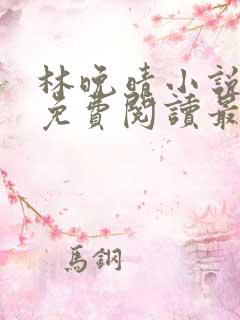 林晚晴小說
免費閱讀最
馬鋼